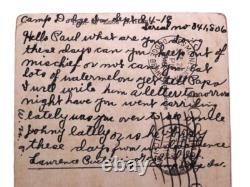 Camp Dodge Ia Sept 24-18
Serial no 841,506
Hello Paul what are you
these days can you keep out of
mischief or not can you eat
lots of watermelon yet tell Papa
I will write him a letter tomorrow
night have you went carrying
lately was you over to see
Johny lately or is he
these days from
Lawrence